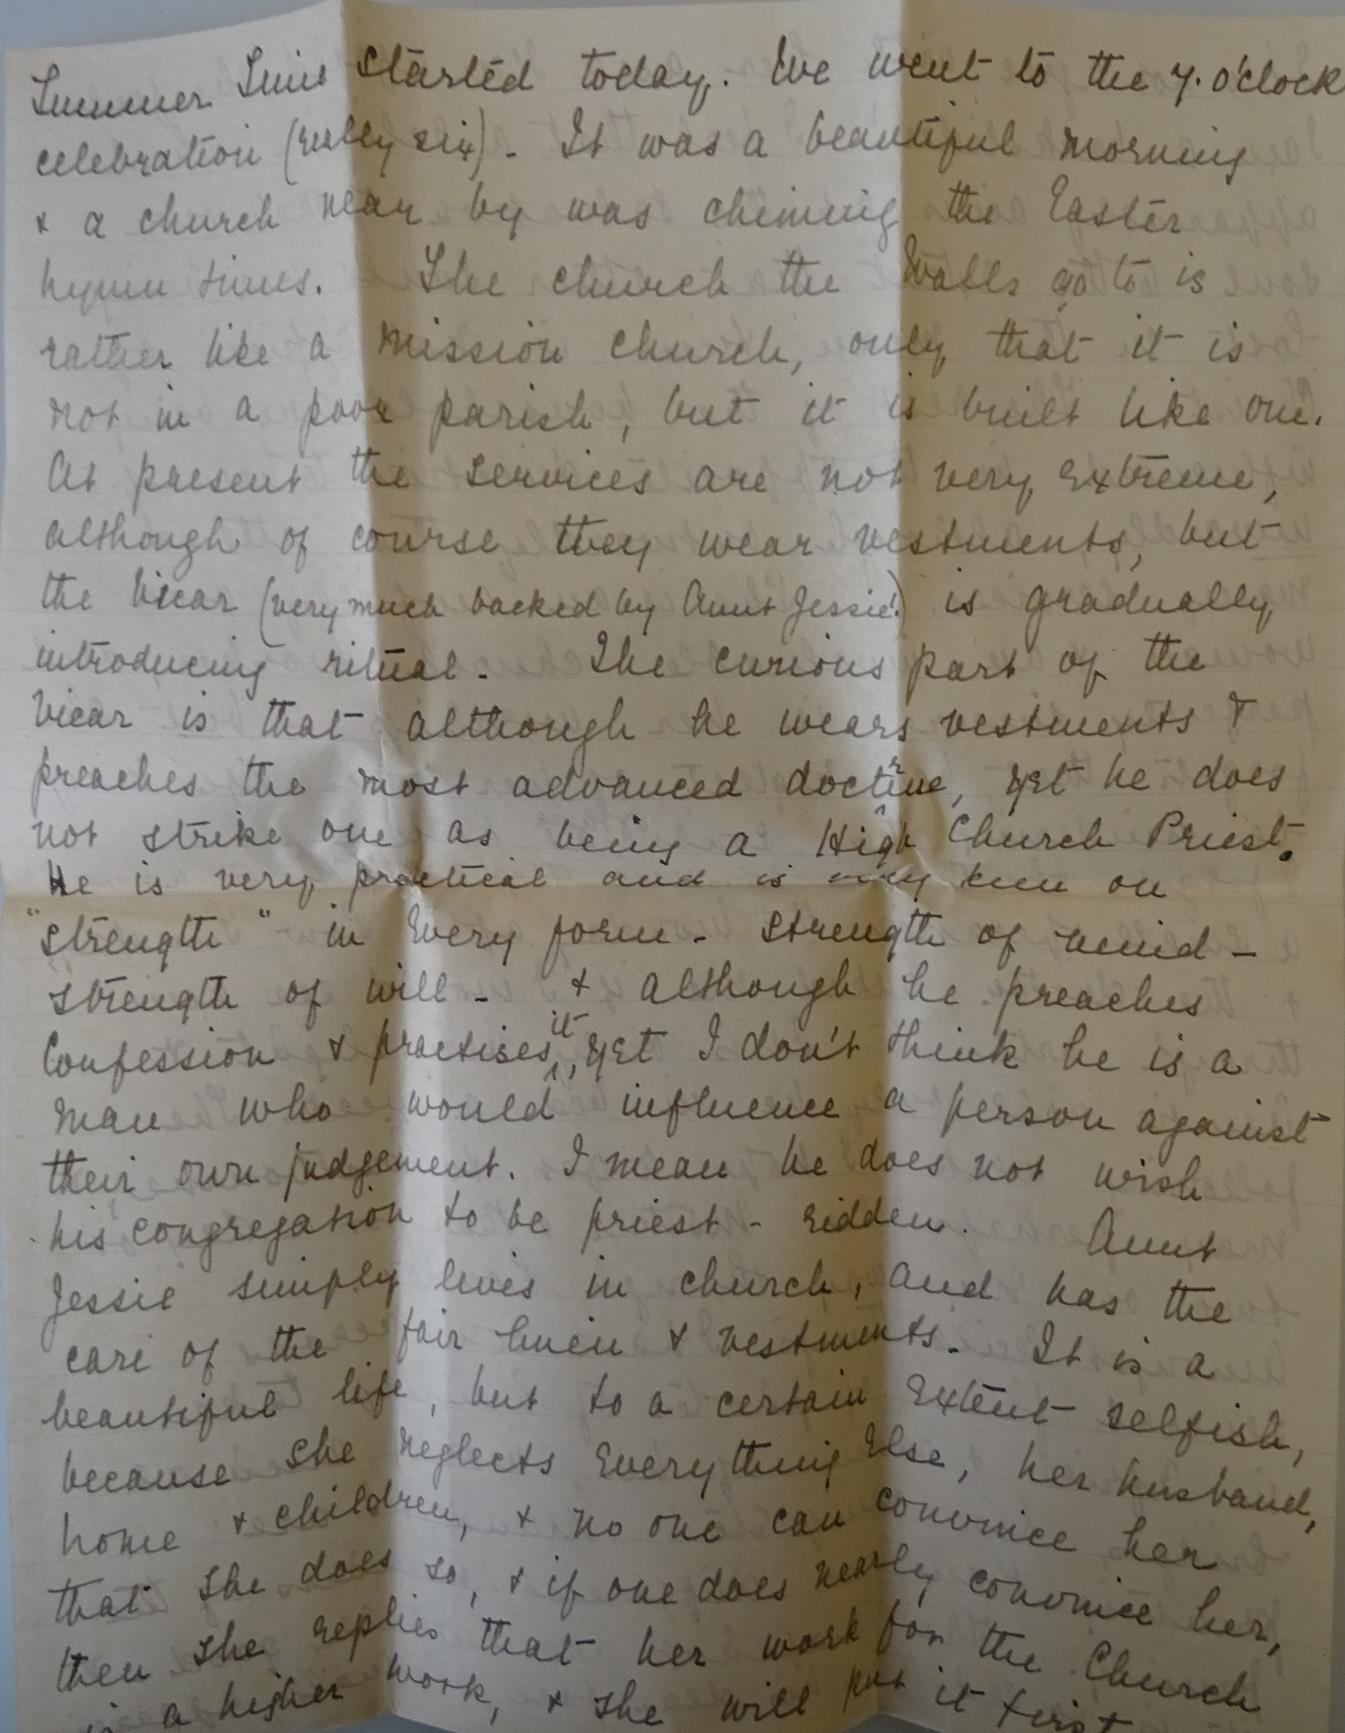 Summer Time started today. We went to the 7. o'clock
celebration (really six). It was a beautiful morning
& a church near by was chiming the Easter
hymn tunes. The church the Walls go to is
rather like a mission church, only that it is
not in a poor parish, but it is built like one.
At present the services are not very extreme,
although of course they wear vestments, but
the Vicar (very much backed by Aunt Jessie!) is gradually
introducing ritual. The curious part of the
Vicar is that although he wears vestments &
preaches the most advanced doctrine, yet he does
not strike one as being a High Church Priest.
He is very practical and is very keen on
"strength" in every form - strength of mind -
strength of will - & although he preaches
Confession & practises it, yet I don't think he is a
man who would influence a person against
their own judgement. I mean he does not wish
his congregation to be priest - ridden. Aunt
Jessie simply lives in church, and has the
care of the fair linen & vestments. It is a
beautiful life, but to a certain extent selfish,
because she neglects everything else, her husband,
home & children, & no one can convince her
that she does so, & if one does nearly convince her,
then she replies that her work for the Church
is a higher work, & she will put it first